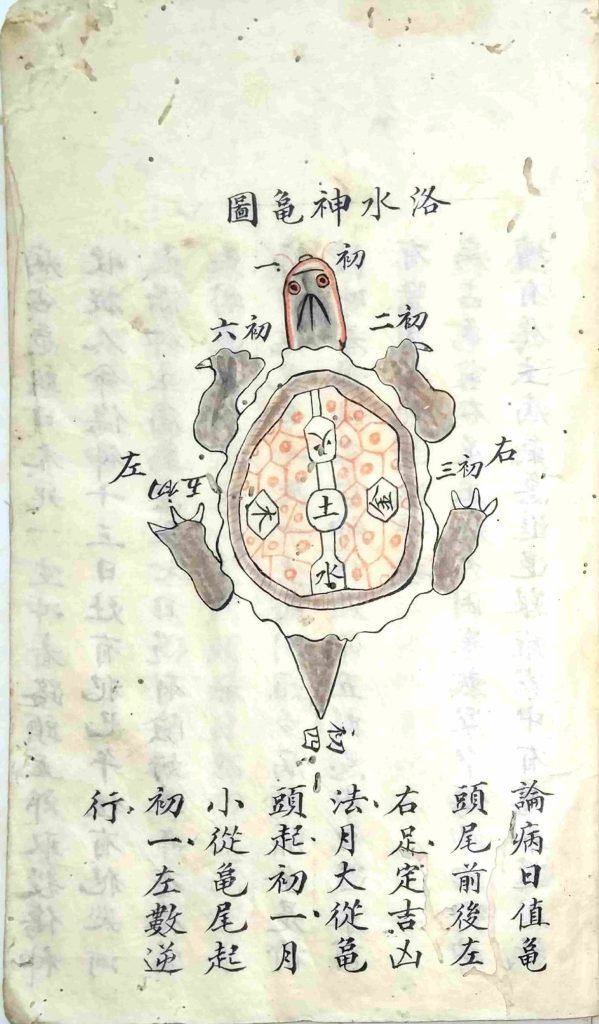 洛水神亀圖
初一
初二
初六
右
初三
左
初五
火
金
土
木
水
初四
論病日值亀
頭尾前後左
右足定吉凶
法月大從亀
頭起初一月
小從亀尾起
初一左數逆
行